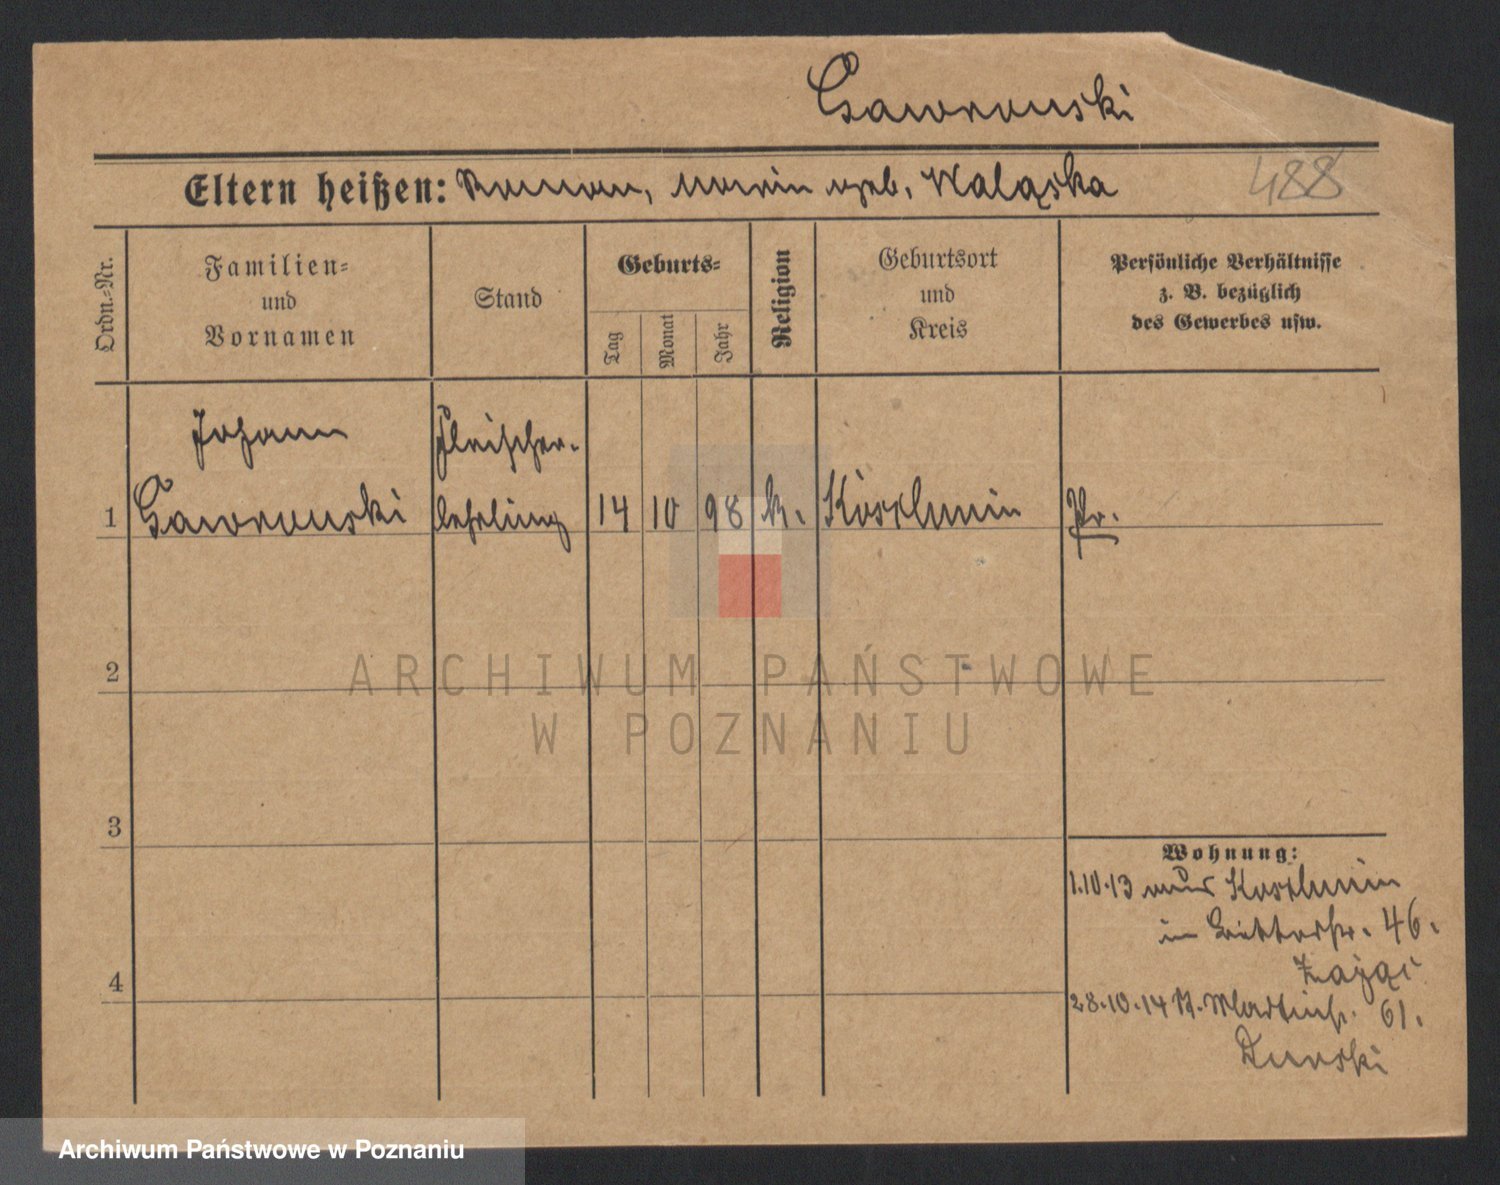 Gaworonski
Eltern heißen: Roman, Marie geb. Walązka
488
Ordn.-Nr.
Familien-
und
Vornamen
Stand
Geburts-
Tag
Monat
Jahr
Religion
Geburtsort
und
Kreis
Persönliche Verhältnisse
z. B. bezüglich
des Gewerbes usw.
Johann
Fleischer-
1 Gaworonski lehrling 14 10 98 k. Koschmin Pr.
2
3
4
Wohnung:
1.10.13 aus Koschmin
in 46.
28.10.14 St. Martinstr. 61.
ARCHIWUM PAŃSTWOWE
W POZNANIU
Archiwum Państwowe w Poznaniu